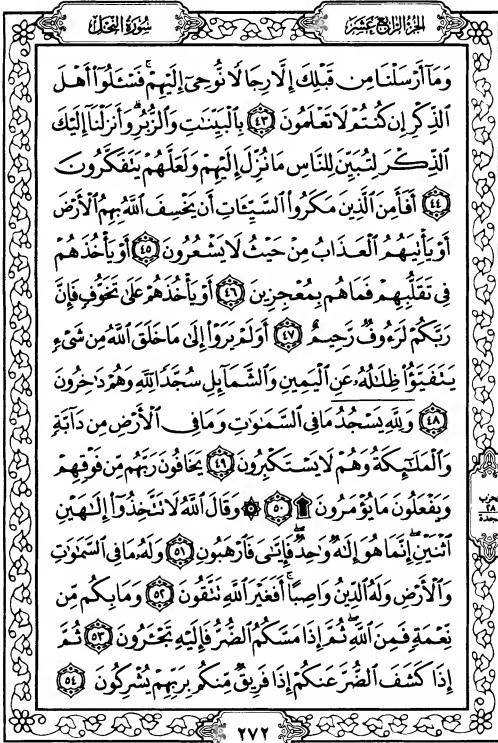 الجزء الرابع عشر
سورة النحل
وَمَآ أَرْسَلْنَا مِن قَبْلِكَ إِلَّا رِجَالًا نُّوحِىٓ إِلَيْهِمْ ۚ فَسْـَٔلُوٓا۟ أَهْلَ
ٱلذِّكْرِ إِن كُنتُمْ لَا تَعْلَمُونَ ٤٣ بِٱلْبَيِّنَـٰتِ وَٱلزُّبُرِ ۗ وَأَنزَلْنَآ إِلَيْكَ
ٱلذِّكْرَ لِتُبَيِّنَ لِلنَّاسِ مَا نُزِّلَ إِلَيْهِمْ وَلَعَلَّهُمْ يَتَفَكَّرُونَ
٤٤ أَفَأَمِنَ ٱلَّذِينَ مَكَرُوا۟ ٱلسَّيِّـَٔاتِ أَن يَخْسِفَ ٱللَّهُ بِهِمُ ٱلْأَرْضَ
أَوْ يَأْتِيَهُمُ ٱلْعَذَابُ مِنْ حَيْثُ لَا يَشْعُرُونَ ٤٥ أَوْ يَأْخُذَهُمْ
فِى تَقَلُّبِهِمْ فَمَا هُم بِمُعْجِزِينَ ٤٦ أَوْ يَأْخُذَهُمْ عَلَىٰ تَخَوُّفٍ فَإِنَّ
رَبَّكُمْ لَرَءُوفٌ رَّحِيمٌ ٤٧ أَوَلَمْ يَرَوْا۟ إِلَىٰ مَا خَلَقَ ٱللَّهُ مِن شَىْءٍ
يَتَفَيَّؤُا۟ ظِلَـٰلُهُۥ عَنِ ٱلْيَمِينِ وَٱلشَّمَآئِلِ سُجَّدًا لِّلَّهِ وَهُمْ دَٰخِرُونَ
٤٨ وَلِلَّهِ يَسْجُدُ مَا فِى ٱلسَّمَـٰوَٰتِ وَمَا فِى ٱلْأَرْضِ مِن دَآبَّةٍ
وَٱلْمَلَـٰٓئِكَةُ وَهُمْ لَا يَسْتَكْبِرُونَ ٤٩ يَخَافُونَ رَبَّهُم مِّن فَوْقِهِمْ
وَيَفْعَلُونَ مَا يُؤْمَرُونَ ۩ ٥٠ ۞ وَقَالَ ٱللَّهُ لَا تَتَّخِذُوٓا۟ إِلَـٰهَيْنِ
ٱثْنَيْنِ ۖ إِنَّمَا هُوَ إِلَـٰهٌ وَٰحِدٌ ۖ فَإِيَّـٰىَ فَٱرْهَبُونِ ٥١ وَلَهُۥ مَا فِى ٱلسَّمَـٰوَٰتِ
وَٱلْأَرْضِ وَلَهُ ٱلدِّينُ وَاصِبًا ۚ أَفَغَيْرَ ٱللَّهِ تَتَّقُونَ ٥٢ وَمَا بِكُم مِّن
نِّعْمَةٍ فَمِنَ ٱللَّهِ ۖ ثُمَّ إِذَا مَسَّكُمُ ٱلضُّرُّ فَإِلَيْهِ تَجْـَٔرُونَ ٥٣ ثُمَّ
إِذَا كَشَفَ ٱلضُّرَّ عَنكُمْ إِذَا فَرِيقٌ مِّنكُم بِرَبِّهِمْ يُشْرِكُونَ ٥٤
حزب
٢٨
سجدة
٢٧٢